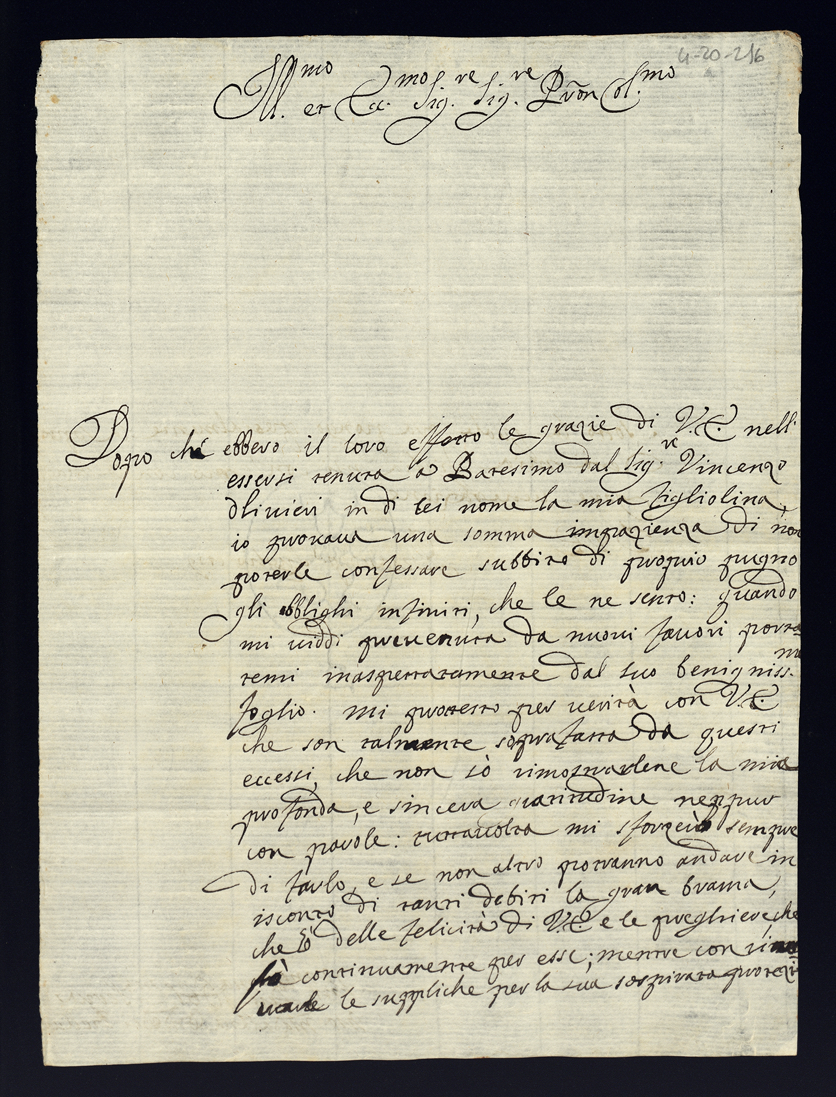 4-20-216
Ill.mo et Ecc.mo Sig.re Sig.re Pron Col.mo
Dopo che ebbero il loro effetto le grazie di V.E. nell'
essersi tenuta a Batesimo dal Sig.re Vincenzo
Olivieri in di lei nome la mia figliolina,
io provava una somma impazienza di non
poterle confessare subbito di proprio pugno
gli obblighi infiniti, che le ne sento: quando
mi viddi prevenuta da nuovi favori
temi inaspettatamente dal suo benigniss.mo
foglio. Mi protesto per verità con V.E.
che son talmente soprafatta da questi
eccessi, che non sò rimostrarlene la mia
profonda, e sincera gratitudine neppur
con parole: tuttavolta mi sforzerò sempre
di farlo, e se non altro potranno andare in
isconto di tanti debiti la gran brama,
che hò delle felicità di V.E. e le preghiere, che
fò continuamente per esse; mentre con
le suppliche per la sua sospirata